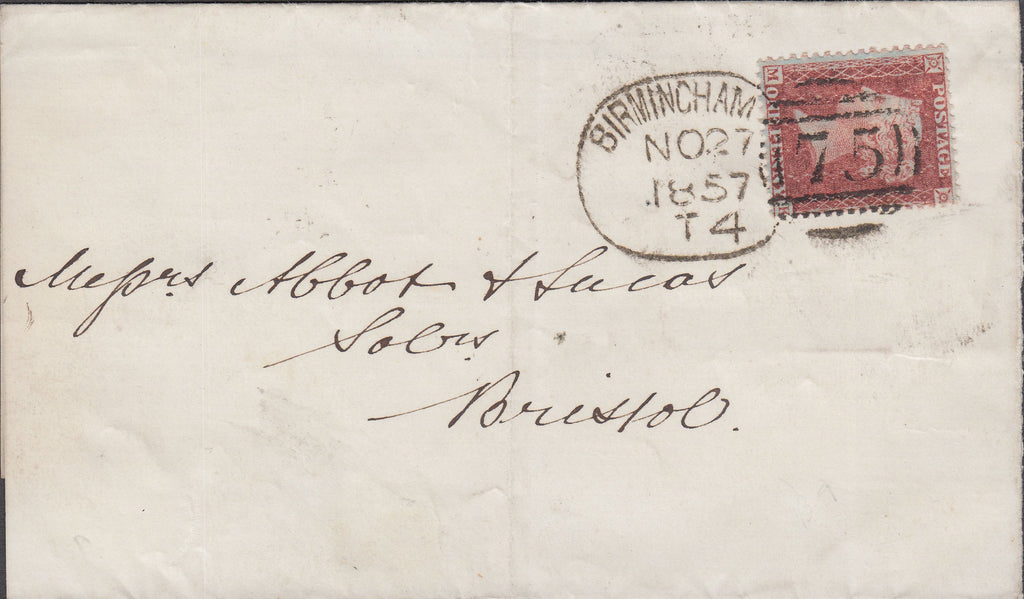 BIRMINGHAM
NO27
1857
T4
75
POSTAGE
ONE PENNY
M
Messrs Abbot & Lucas
Solrs
Bristol.